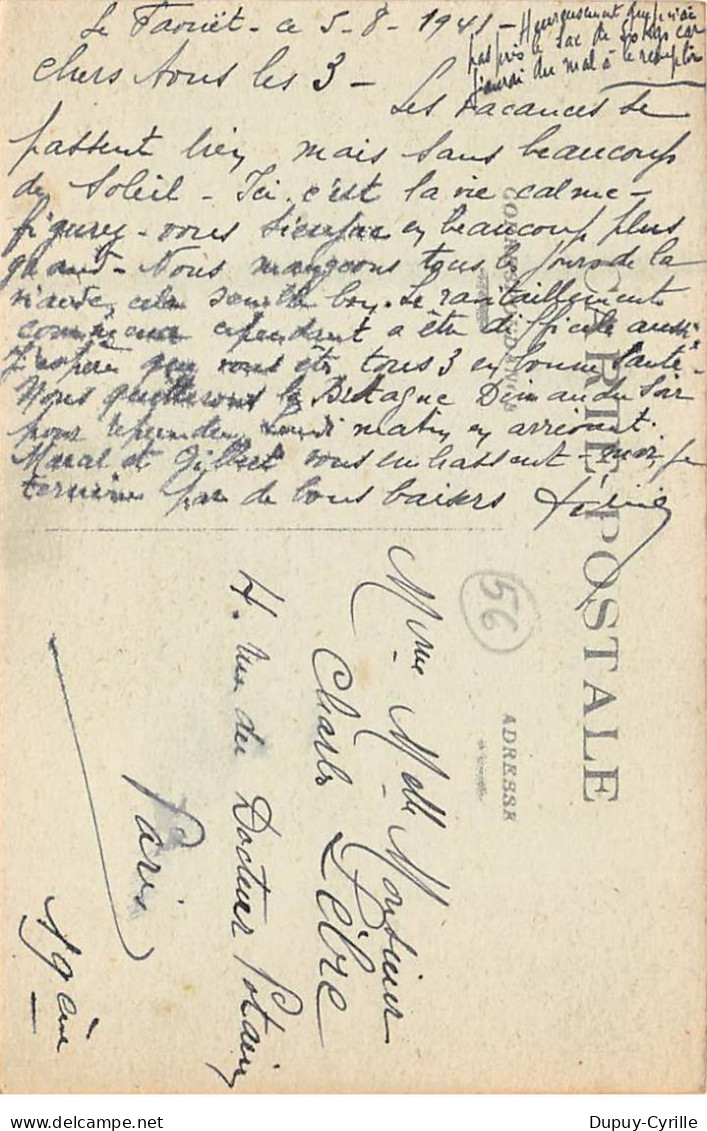 Le Faouët - ce 5-8-1941 -
Heureusement que je n'ai
pas pris le sac de 50 kgs car
j'aurai du mal à le remplir
Chers vous les 3 -
Les vacances se
passent bien, mais sans beaucoup
de Soleil - Ici, c'est la vie calme -
figurez-vous en beaucoup plus
grand - Nous mangeons tous les jours de la
viande, cela semble bon. Le ravitaillement
cependant a été difficile aussi
J'espère que vous êtes tous 3 en bonne Santé -
Nous quitterons la Bretagne Dimanche Soir
pour Lundi matin en arrivant.
et Gilbert vous embrassent - moi, je
termine par de bons baisers
CARTE POSTALE
CORRESPONDANCE
ADRESSE
56
Mme Melle Monsieur
Charles Lèbre
4. rue du Docteur Potain
Paris
19ème
Dupuy-Cyrille